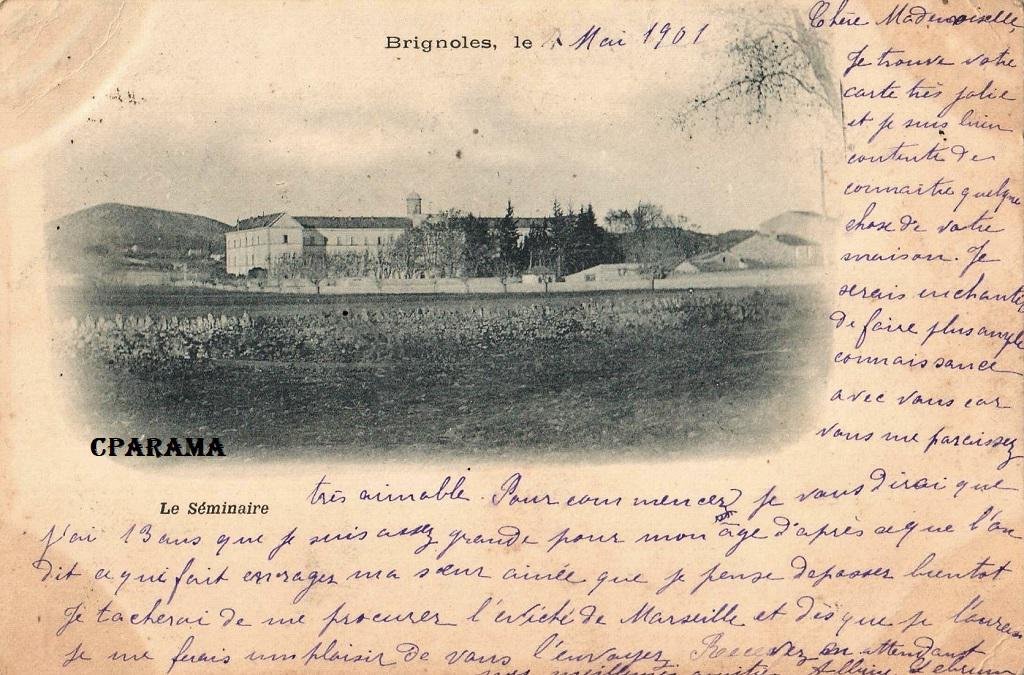 Brignoles, le Mai 1901
Chère Mademoiselle,
Je trouve votre
carte très jolie
et je suis bien
contente de
connaitre quelque
chose de votre
maison. Je
serais enchantée
de faire plus ample
connaissance
avec vous car
vous me paraissez
très aimable. Pour commencer je vous dirai que
j'ai 13 ans que je suis assez grande pour mon âge d'après ce que l'on
dit ce qui fait enrager ma sœur ainée que je pense depasser bientot
Je tacherai de me procurer l'évêché de Marseille et dès que je l'aurai
je me ferais un plaisir de vous l'envoyez Recevez en attendant
mes meilleures amitiés
CPARAMA
Le Séminaire